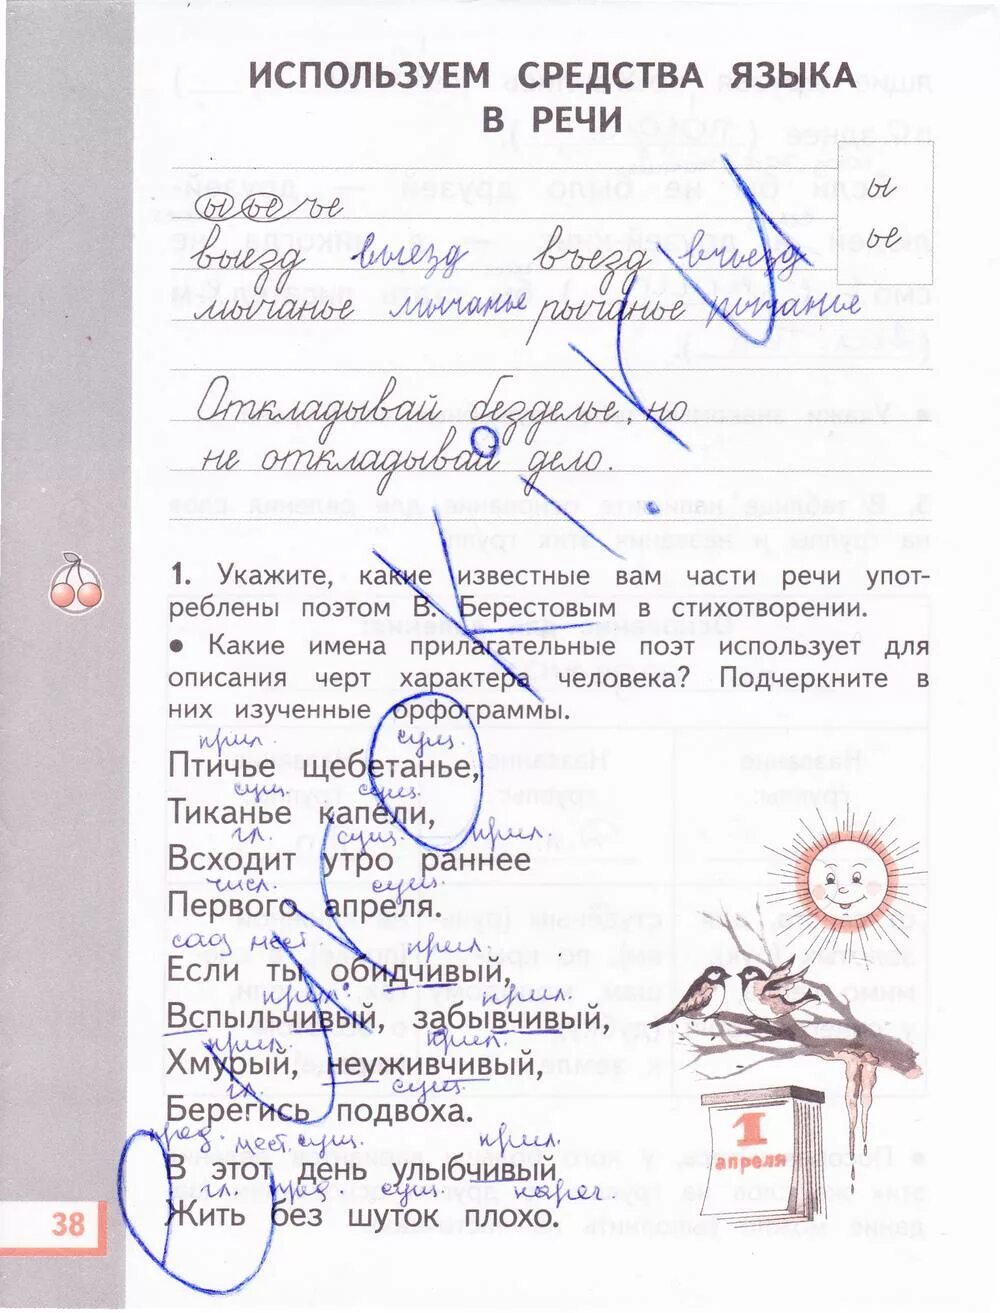 ИСПОЛЬЗУЕМ СРЕДСТВА ЯЗЫКА
В РЕЧИ
ы ье ъе
ы
ье
выезд выезд въезд въезд
мычанье мычанье рычанье рычание
Откладывай безделье, но
не откладывай дело.
1. Укажите, какие известные вам части речи упот-
реблены поэтом В. Берестовым в стихотворении.
• Какие имена прилагательные поэт использует для
описания черт характера человека? Подчеркните в
них изученные орфограммы.
прил. сущ.
Птичье щебетанье,
сущ. сущ.
Тиканье капели,
гл. сущ. прил.
Всходит утро раннее
числ. сущ.
Первого апреля.
мест. прил.
Если ты обидчивый,
прил. прил.
Вспыльчивый, забывчивый,
прил. прил.
Хмурый, неуживчивый,
гл. сущ.
Берегись подвоха.
пред. мест. сущ. прил.
В этот день улыбчивый
гл. пред. сущ. нареч.
Жить без шуток плохо.
1
апреля
38